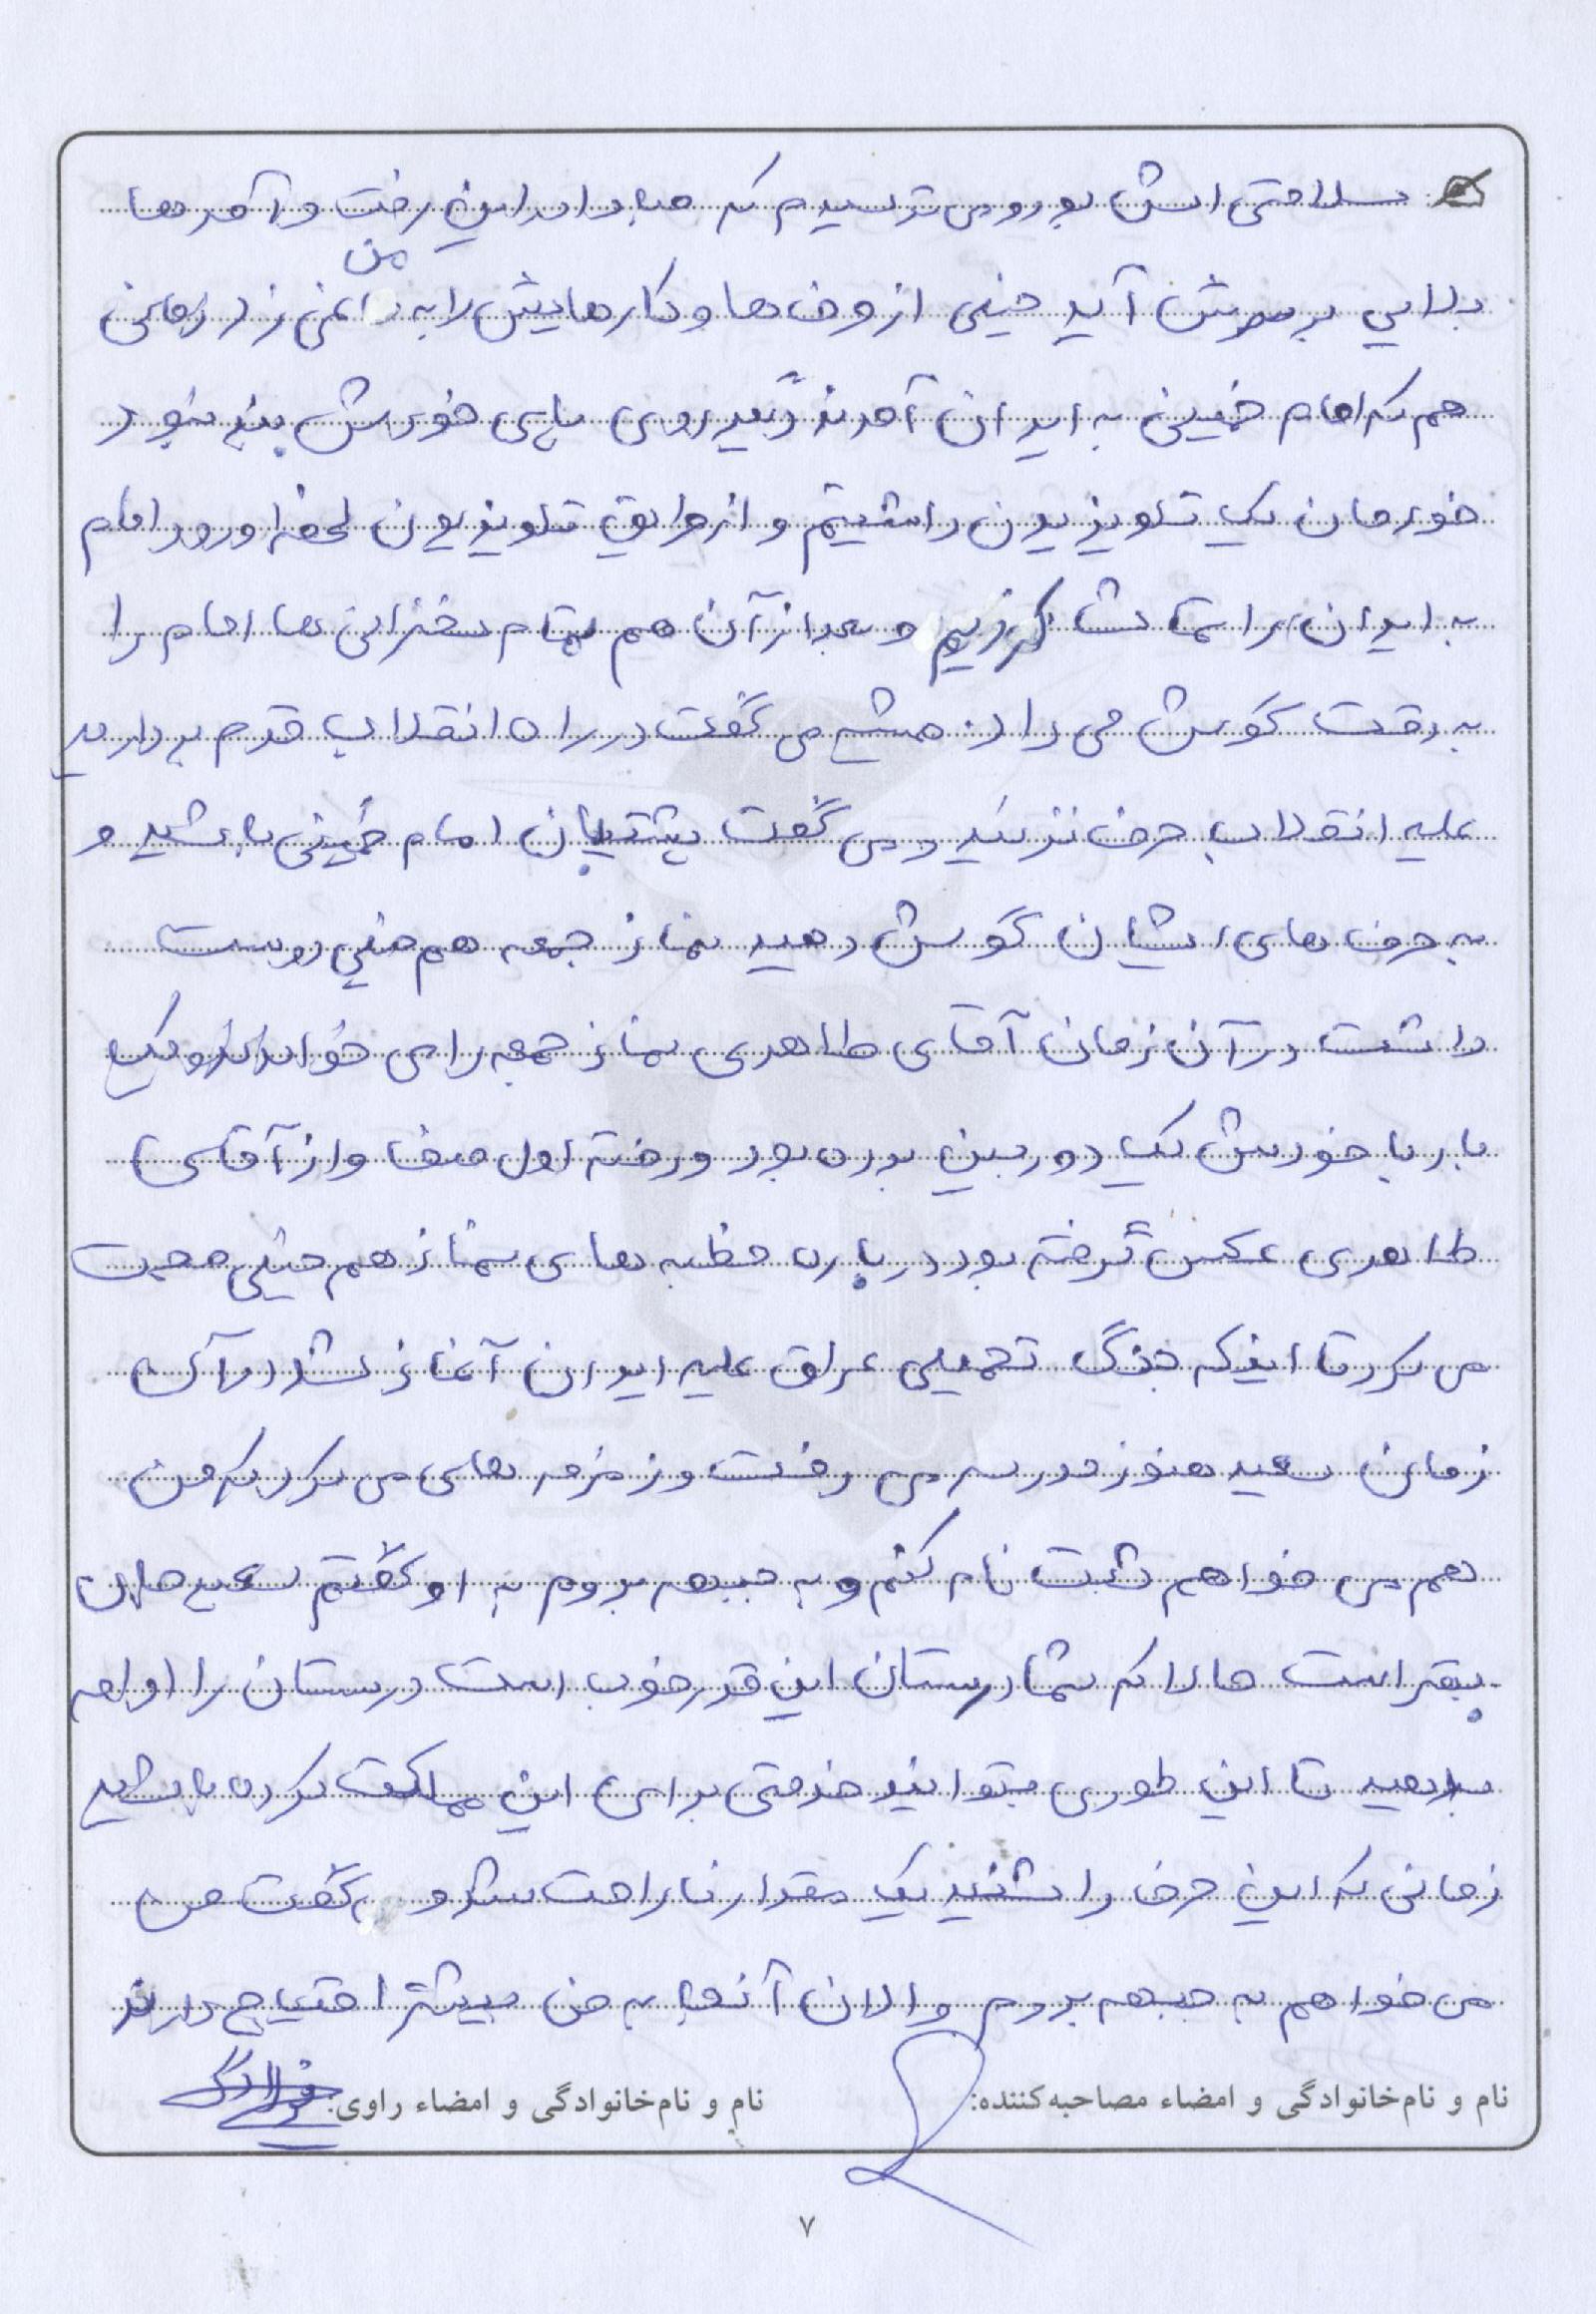 سلامتی اش بود و می ترسیدم که مبادا در این رفت و آمدها
بلایی بر سرش آید خیلی از وقت ها و کارهایش را به من نمی زد زمانی
هم که امام خمینی به ایران آمدند دیگر روی پای خودش بند نبود
خودمان یک تلویزیون داشتیم و از طریق تلویزیون لحظه ورود امام
به ایران را تماشا کردیم و بعد از آن هم تمام سخنرانی ها امام را
به دقت گوش می داد. همش می گفت در راه انقلاب قدم بردارید
علیه انقلاب حرف نزنید و می گفت پشتیبان امام خمینی باشید و
به حرف های ایشان گوش دهید نماز جمعه هم خیلی دوست
داشت در آن زمان آقای طاهری نماز جمعه را می خواندند و یک
بار با خودش یک دوربین برده بود و رفته اول صف و از آقای
طاهری عکس گرفته بود درباره خطبه های نماز هم خیلی صحبت
می کرد تا اینکه جنگ تحمیلی عراق علیه ایران آغاز شد در آن
زمان سعید هنوز مدرسه می رفت و زمزمه های می کرد که من
هم می خواهم ثبت نام کنم و به جبهه بروم به او گفتم سعید جان
بهتر است حالا که شما درستان این قدر خوب است درستان را ادامه
بدهید تا این طوری بتوانید خدمتی برای این مملکت کرده باشید
زمانی که این حرف را شنید یک مقدار ناراحت شد و گفت من
می خواهم به جبهه بروم و الان آنها به من بیشتر احتیاج دارند
نام و نام‌خانوادگی و امضاء مصاحبه‌کننده: نام و نام‌خانوادگی و امضاء راوی:
۷